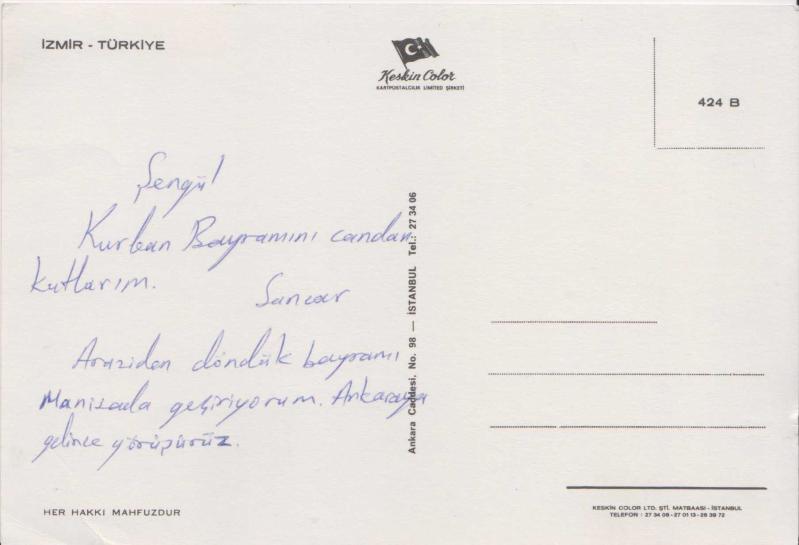 İZMİR - TÜRKİYE
Keskin Color
KARTPOSTALCILIK LIMITED ŞİRKETİ
424 B
Şengül
Kurban Bayramını candan
kutlarım.
Sancar
Araziden döndük bayramı
Manisada geçiriyorum. Ankaraya
gelince görüşürüz.
Ankara Caddesi. No. 98 — İSTANBUL Tel.: 27 34 06
HER HAKKI MAHFUZDUR
KESKİN COLOR LTD. ŞTİ. MATBAASI - İSTANBUL
TELEFON : 27 34 06 - 27 01 13 - 26 39 72